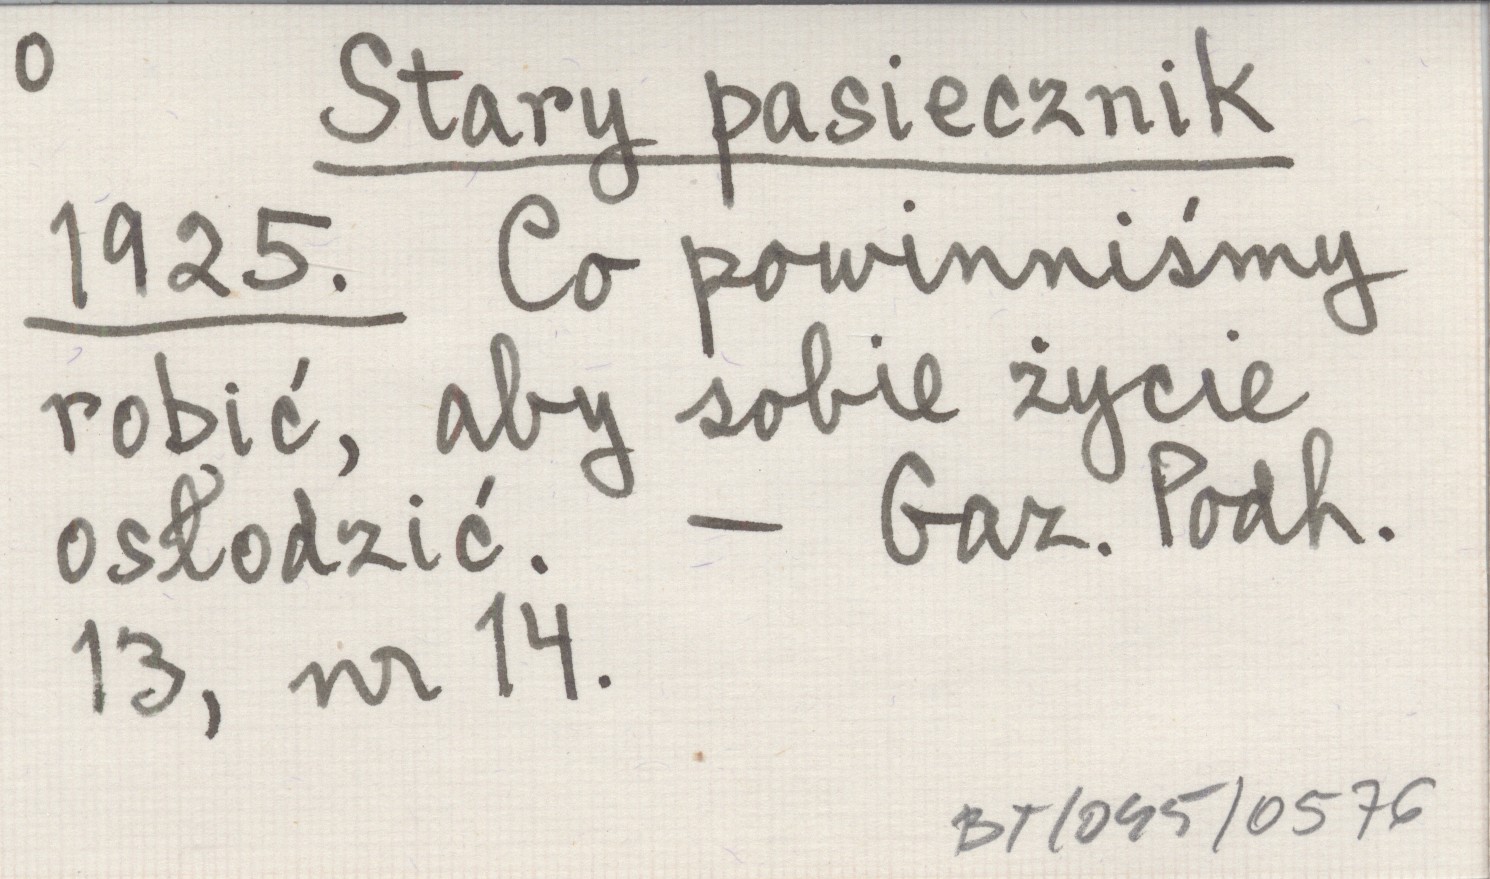 0 Stary pasiecznik
1925. Co powinniśmy
robić, aby sobie życie
osłodzić. — Gaz. Podh.
13, nr 14.
BT/045/0576